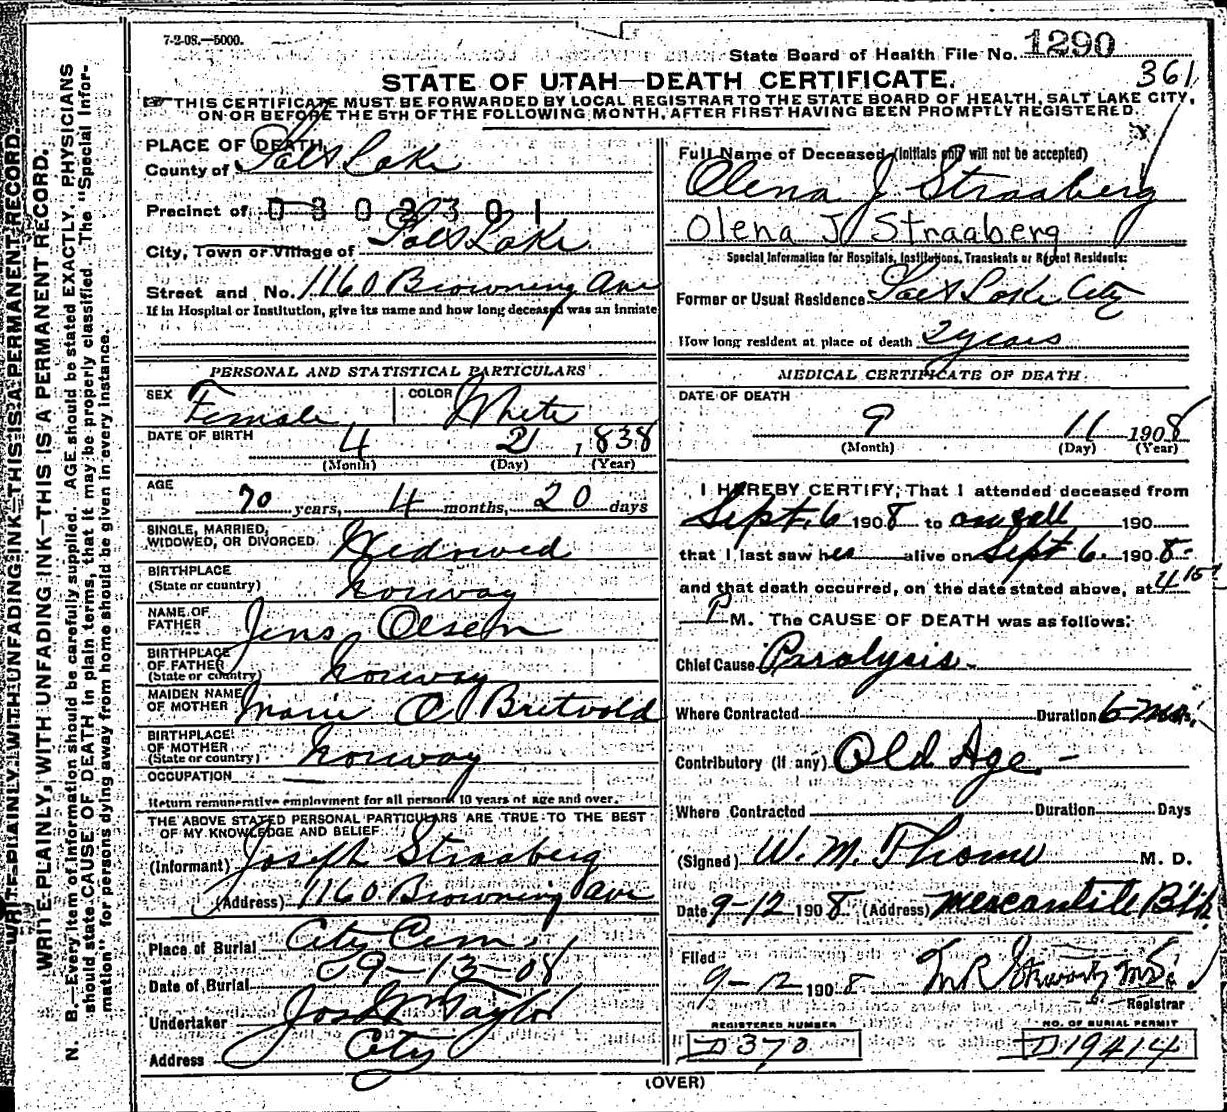 7-2-08.—5000.
State Board of Health File No. 1290
361
STATE OF UTAH—DEATH CERTIFICATE.
THIS CERTIFICATE MUST BE FORWARDED BY LOCAL REGISTRAR TO THE STATE BOARD OF HEALTH, SALT LAKE CITY,
ON OR BEFORE THE 5TH OF THE FOLLOWING MONTH, AFTER FIRST HAVING BEEN PROMPTLY REGISTERED.
WRITE PLAINLY, WITH UNFADING INK—THIS IS A PERMANENT RECORD.
WRITE PLAINLY, WITH UNFADING INK—THIS IS A PERMANENT RECORD.
N. B.—Every item of information should be carefully supplied. AGE should be stated EXACTLY. PHYSICIANS
should state CAUSE OF DEATH in plain terms, that it may be properly classified. The "Special Infor-
mation" for persons dying away from home should be given in every instance.
PLACE OF DEATH
County of Salt Lake
Precinct of 0302301
City, Town or Village of Salt Lake
Street and No. 1160 Browning Ave
If in Hospital or Institution, give its name and how long deceased was an inmate
PERSONAL AND STATISTICAL PARTICULARS
SEX Female COLOR White
DATE OF BIRTH 4 21 1838
(Month) (Day) (Year)
AGE
70 years, 4 months, 20 days
SINGLE, MARRIED,
WIDOWED, OR DIVORCED Widowed
BIRTHPLACE
(State or country) Norway
NAME OF
FATHER Jens Olsen
BIRTHPLACE
OF FATHER
(State or country) Norway
MAIDEN NAME
OF MOTHER Marie O Britvold
BIRTHPLACE
OF MOTHER
(State or country) Norway
OCCUPATION
Return remunerative employment for all persons 10 years of age and over.
THE ABOVE STATED PERSONAL PARTICULARS ARE TRUE TO THE BEST
OF MY KNOWLEDGE AND BELIEF
(Informant) Joseph Straaberg
(Address) 1160 Browning Ave
Place of Burial City Cem.
Date of Burial 09-13-08
Undertaker Jos Wm Taylor
Address City
Full Name of Deceased (Initials only will not be accepted)
Olena J Straaberg
Olena J Straaberg
Special Information for Hospitals, Institutions, Transients or Recent Residents:
Former or Usual Residence Salt Lake City
How long resident at place of death 2 years
MEDICAL CERTIFICATE OF DEATH
DATE OF DEATH
9 11 1908
(Month) (Day) (Year)
I HEREBY CERTIFY, That I attended deceased from
Sept. 6 1908 to on call 190
that I last saw her alive on Sept 6. 1908-
and that death occurred, on the date stated above, at 11 15
P M. The CAUSE OF DEATH was as follows:
Chief Cause Paralysis-
Where Contracted Duration 6 mos.
Contributory (If any) Old Age.-
Where Contracted Duration Days
(Signed) W. M. Thome M. D.
Date 9-12 1908. (Address) Mercantile Bldg
Filed
9-12 1908 M R Stewart M.D.
Registrar
REGISTERED NUMBER
D 370
NO. OF BURIAL PERMIT
D 19414
(OVER)